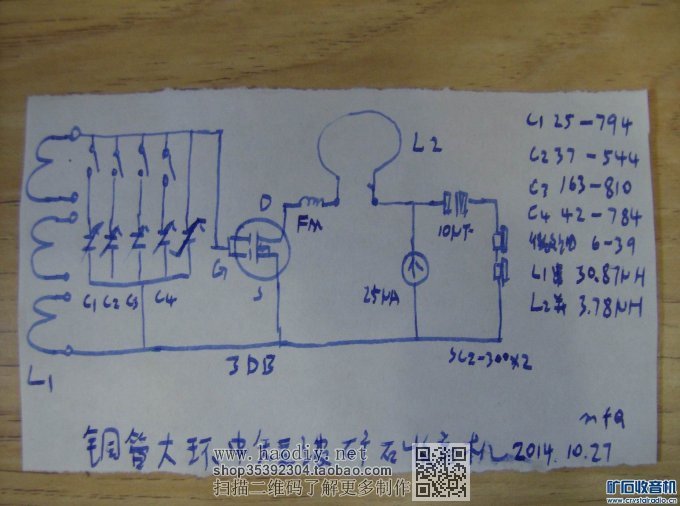 C1 25-794
C2 37-544
C3 163-810
C4 42-784
6-39
L1 30.87μH
L2 3.78μH
L2
D
FM
G
S
10μF
25μA
C1 C2 C3 C4
L1
3DB
SC2-300×2
铜管大环
矿石收音机 2014.10.27
www.haodiy.net
shop35392304.taobao.com
扫描二维码了解更多制作
矿石收音机
www.crystalradio.cn